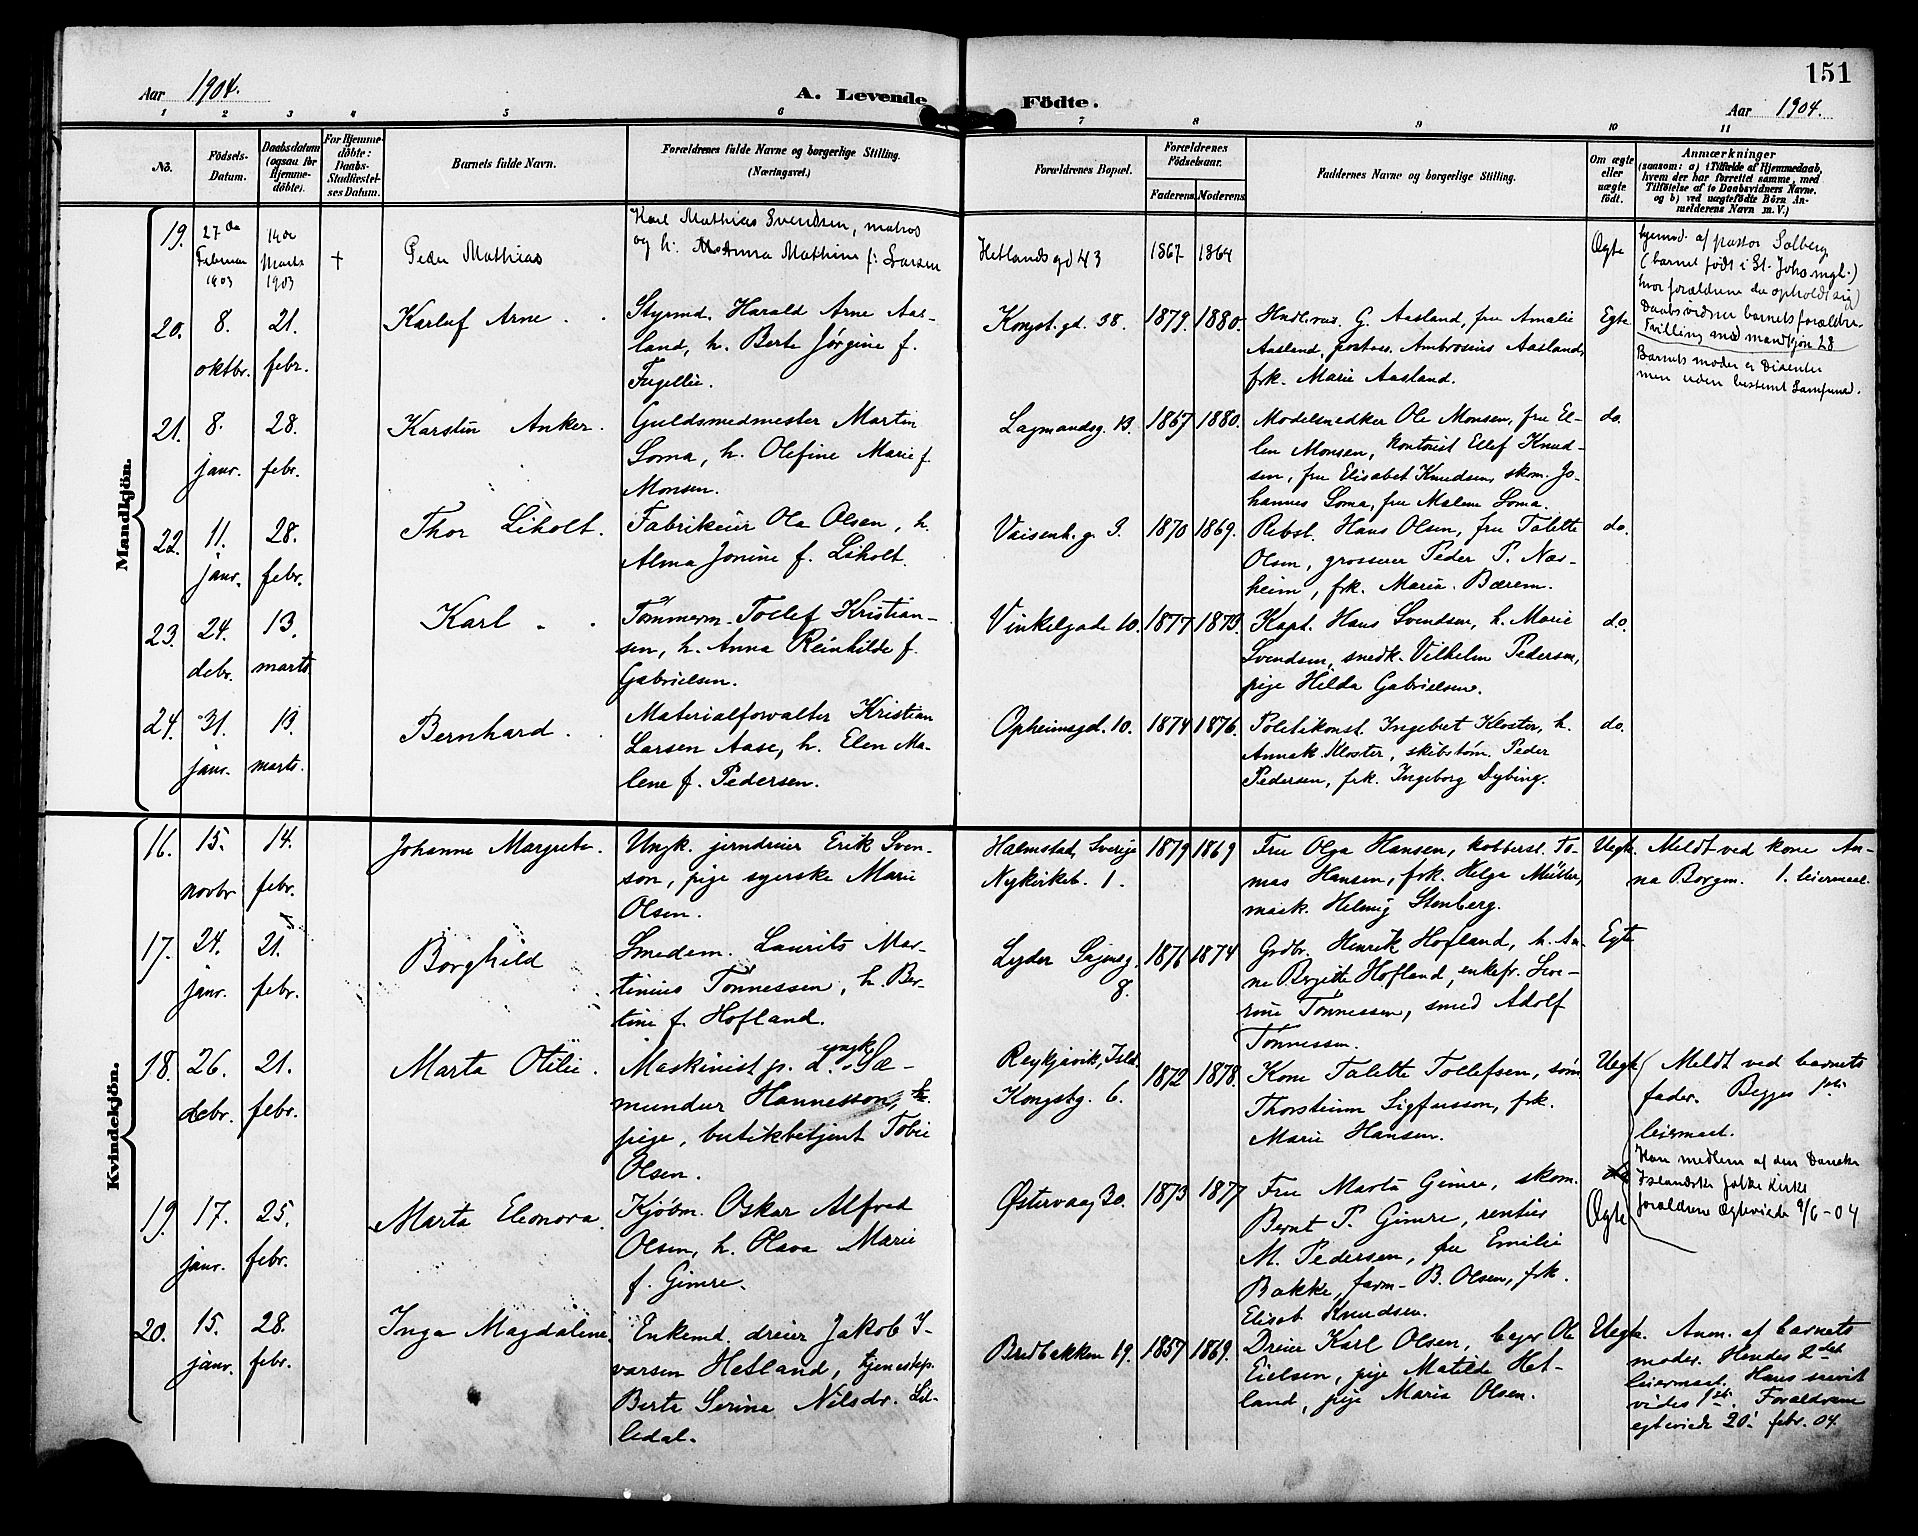 151
Aar 1904.
A. Levende
Födte.
Aar 1904.
1 2 3 4 5 6 7 8 9 10 11
No.
Födsels-
Datum.
Daabsdatum
(ogsaa for
Hjemme-
döbte).
For Hjemme-
döbte:
Daabs-
Stadfæstel-
ses Datum.
Barnets fulde Navn.
Forældrenes fulde Navne og borgerlige Stilling.
(Næringsvei.)
Forældrenes Bopæl.
Forældrenes
Födselsaar.
Faderens. Moderens.
Faddernes Navne og borgerlige Stilling.
Om ægte
eller
uægte
födt.
Anmærkninger
(saasom: a) i Tilfælde af Hjemmedaab,
hvem der har forrettet samme, med
Tilföielse af to Daabsvidners Navne,
og b) ved uægtefödte Börn An-
melderens Navn m. V.)
Mandkjön.
19.
27de
Februar
1903
Marts
1903
+
Peder Mathias
Karl Mathias Svendsen, matros
og h. Anna Mathine f: Larsen
Hetlandsgd 43
1867 1864
Ægte
hjemd. af pastor Solberg
(barnet födt i St. Johs mgl.)
hvor forældrene da opholdt sig)
Daabsvidner barnets forældre.
20.
8.
oktbr.
21.
febr.
Karluf Arne
Styrmd. Harald Arne Aas-
land, h. Berte Jørgine f.
Fugellie.
Kongst. gd. 38.
1879. 1880.
Hndl.rei. G. Aasland, fru Amalie
Aasland, Ambrosius Aasland,
frk. Marie Aasland.
Egte
Tvilling med mandkjön 28
Barnets moder er Disenter
men uden bestemt Samfund.
21.
8.
janr.
28.
febr.
Karstin Anker.
Guldsmedmester Martin
Soma, h. Olefine Marie f.
Monsen.
Lagmandsg. 13.
1867 1880.
Modelsnedker Ole Monsen, fru El-
len Monsen, kontorist Ellef Knud-
sen, fru Elisabet Knudsen, skom. Jo-
hannes Soma, fru Malene Soma.
do.
22.
11.
janr.
28.
febr.
Thor Liholt.
Fabrikeier Ole Olsen, h.
Alma Jonine f. Liholt.
Vaisenh. g. 3.
1870 1869.
Rebsl. Hans Olsen, fru Talette
Olsen, grosserer Peder P. Næs-
heim, frk. Maria Bærem.
do.
23.
24.
debr.
13.
marts
Karl
Tømmerm. Tollef Kristian-
sen, h. Anna Reinhilde f.
Gabrielsen.
Vinkelgade 10.
1877 1873.
Kapt. Hans Svendsen, h. Marie
Svendsen, snedk. Vilhelm Pedersen,
pige Hilda Gabrielsen.
do.
24.
31.
janr.
13.
marts.
Bernhard.
Materialforvalter Kristian
Larsen Aase, h. Elen Ma-
lene f. Pedersen.
Opheimsgd. 10.
1874 1876.
Politikonst. Ingebret Kloster, h.
Annak Kloster, skibstøm. Peder
Pedersen, frk. Ingeborg Dybing.
do.
Kvindekjön.
16.
15.
novbr
14.
febr.
Johanne Margrete.
Ungk. jerndreier Erik Sven-
son, pige syerske Marie
Olsen.
Halmstad, Sverige
Nykirkeb. 1.
1879 1869
Fru Olga Hansen, kobbersl. To-
mas Hansen, frk. Helga Müller,
mask. Helmig Stenberg.
Uegte.
Meldt ved kone An-
na Borgm. 1. leiermaal.
17.
24.
janr.
21.
febr.
Borghild
Smedem. Laurits Mar-
tinius Tønnessen, h. Ber-
tine f. Hofland.
Lyder Sagensg.
8.
1876 1874
Grdbr. Henrik Hofland, h. An-
ne Birgitte Hofland, enkefr. Seve-
rine Tønnessen, smed Adolf
Tønnessen.
Egte
18.
26.
debr.
21.
febr.
Marta Otilie.
Maskinist p. d. ungk. Sæ-
mundur Hannesson, h.
pige, butikbetjent Tobie
Olsen.
Reykjavik, Isld.
Kongsbg. 6.
1872 1878.
Kone Talette Tollefsen, søm.
Thorsteinn Sigfusson, frk.
Marie Hansen.
Uegte
Meldt ved barnets
fader. Begges 1ste
leiermaal.
Han medlem af den Danske
Islandske folke kirke
forældrene Ægteviede 9/6-04
19.
17.
janr.
25.
febr.
Marta Eleonora.
Kjøbm. Oskar Alfred
Olsen, h. Olava Marie
f. Gimre.
Østervaag 30.
1873 1877
Fru Marta Gimre, skom.
Bernt P. Gimre, rentier
M. Pedersen, fru Emilie
Bakke, farm. B. Olsen, frk.
Elisab Knudsen.
do
Ægte
20.
15.
janr.
28.
febr.
Inga Magdalene.
Enkemd. dreier Jakob I-
varsen Hetland, tjenestep.
Berte Serine Nilsdr. Lil-
ledal.
Bredbakken 19.
1857 1869.
Dreier Karl Olsen, bager Ole
Eielsen, pige Matilde Het-
land, pige Maria Olsen.
Uegte.
Anm. af barnets
moder. Hendes 2det
leiermaal. Hans
vides 1ste. Forældrene
egteviede 20. febr. 04.